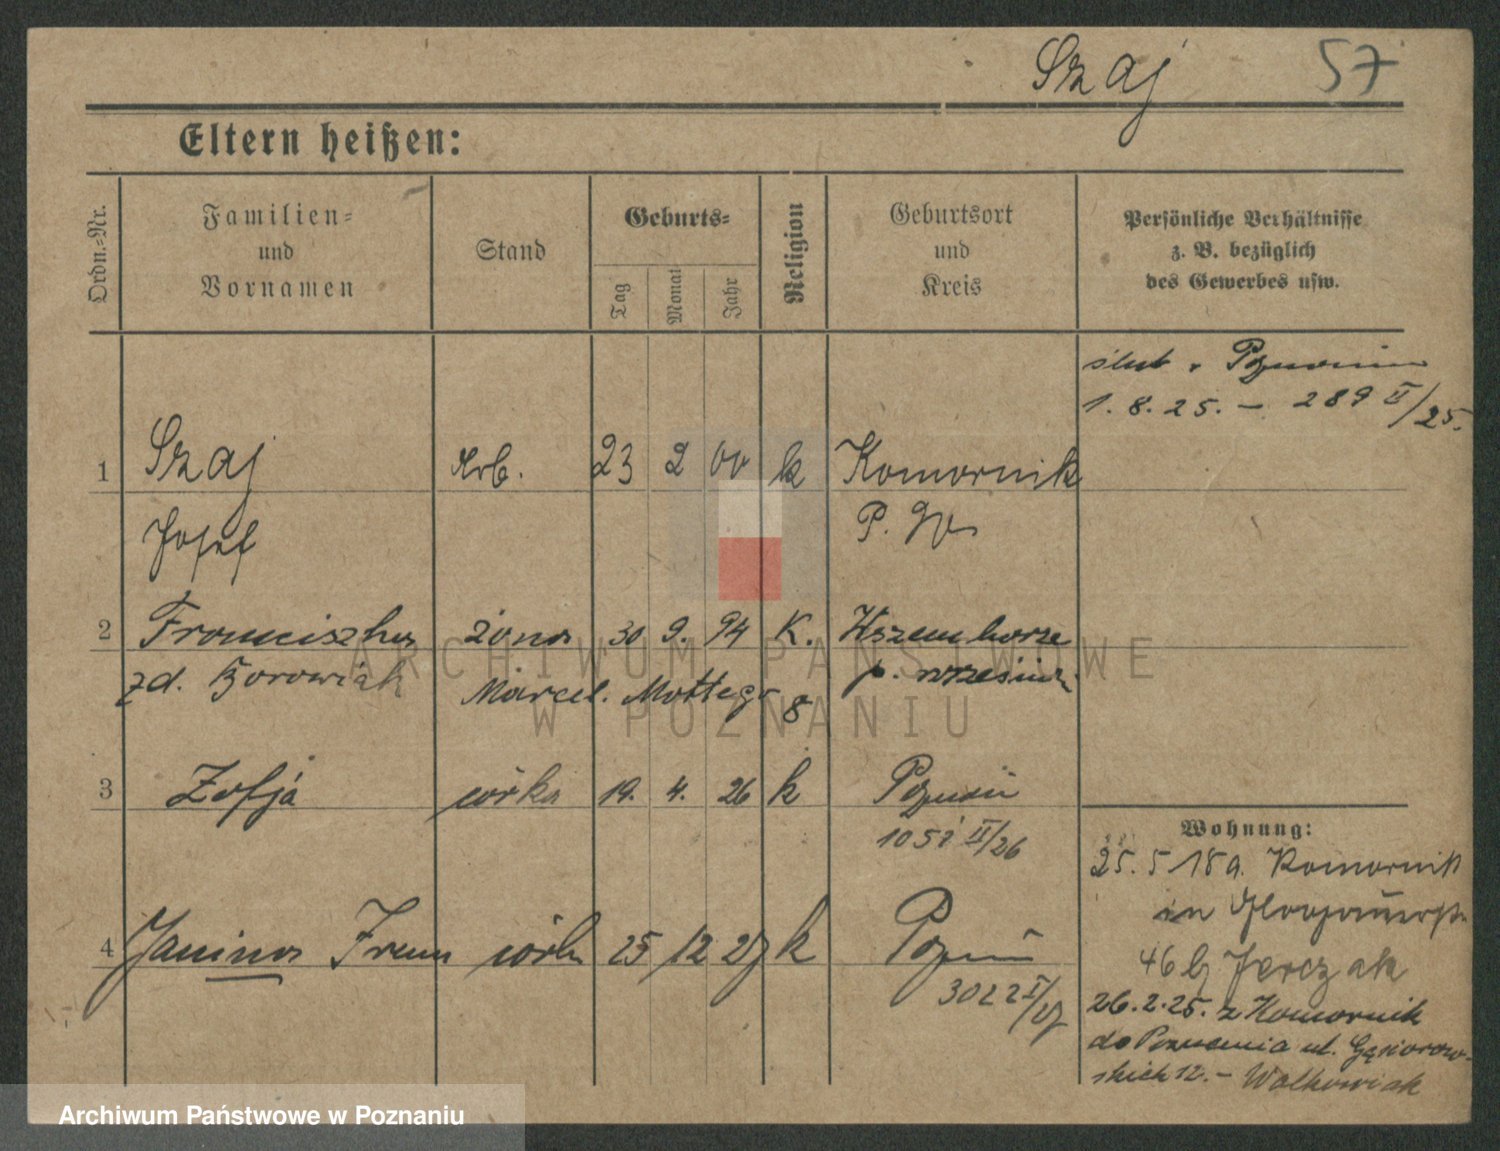 Szaj 57
Eltern heißen:
Ordn.-Nr.
Familien-
und
Vornamen
Stand
Geburts-
Tag
Monat
Jahr
Religion
Geburtsort
und
Kreis
Persönliche Verhältnisse
z. B. bezüglich
des Gewerbes usw.
ślub w Poznaniu
1. 8. 25. – 289 II/25.
1 Szaj Arb. 23 2 00 k Komornik
Josef P. W
2 Franciszka żona 30 9. 94 K. Wszemborze
zd. Borowiak Marcel. Mottego 8 p. września
3 Zofja córka 19. 4. 26 k Poznań
1051 II/26
4 Janina Iren córk 25 12 27 k Poznań
3022 I/27
Wohnung:
25. 5 18 a. Komornik
in
46 b/ Jerczak
26. 2. 25. z Komornik
do Poznania ul. Gąsiorow-
skich 12. – Walkowiak
ARCHIWUM PAŃSTWOWE
W POZNANIU
Archiwum Państwowe w Poznaniu